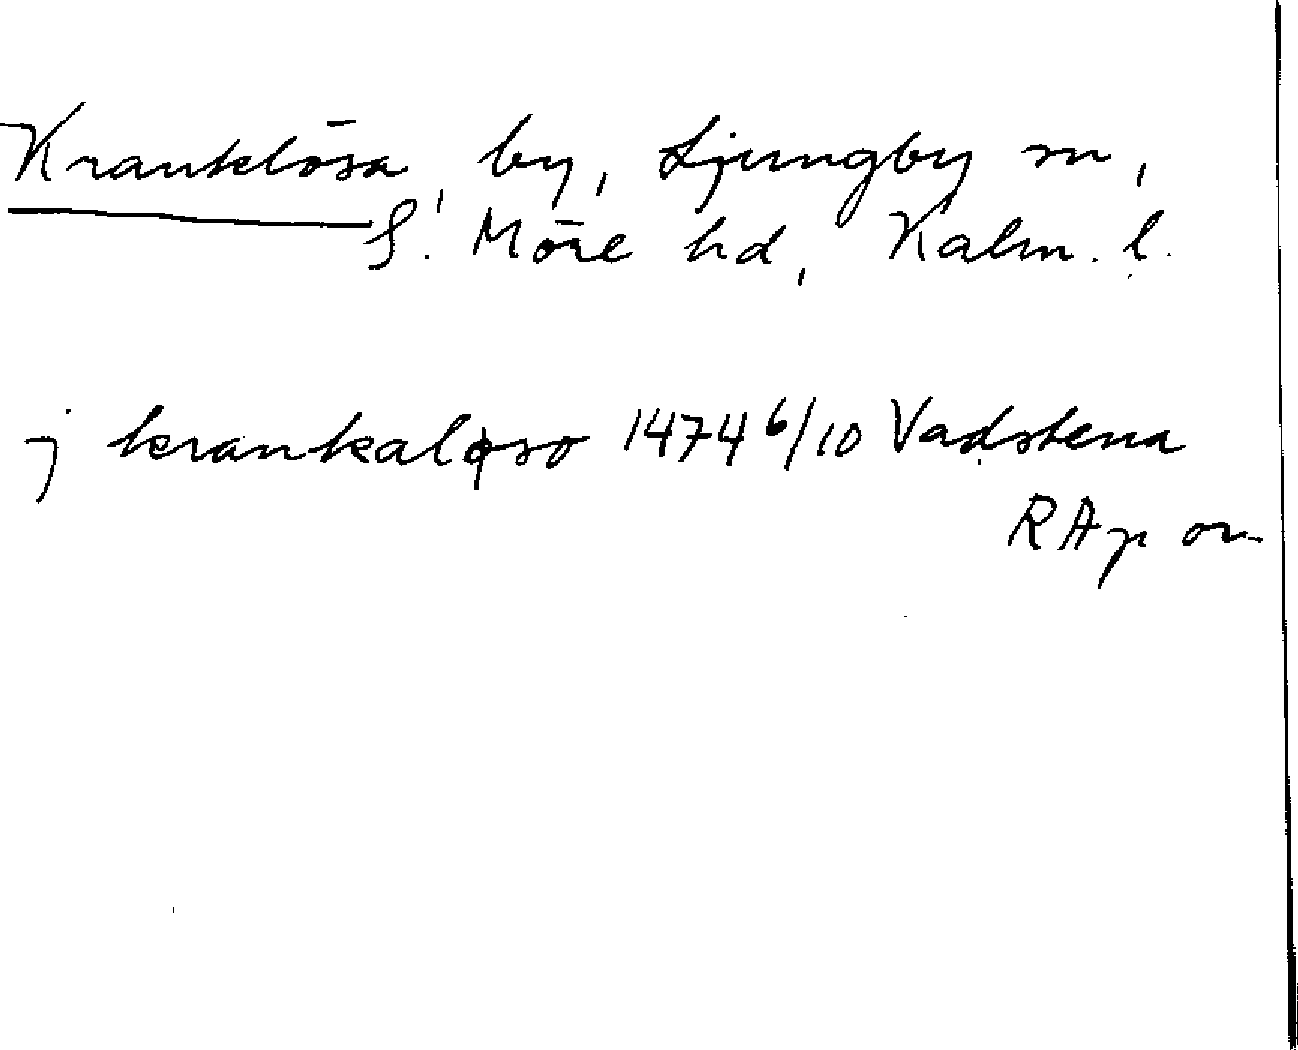 Kranklösa, by, Ljungby sn,
S. Möre hd, Kalm. l.
j krankaløso 1474 6/10 Vadstena
RAp or.